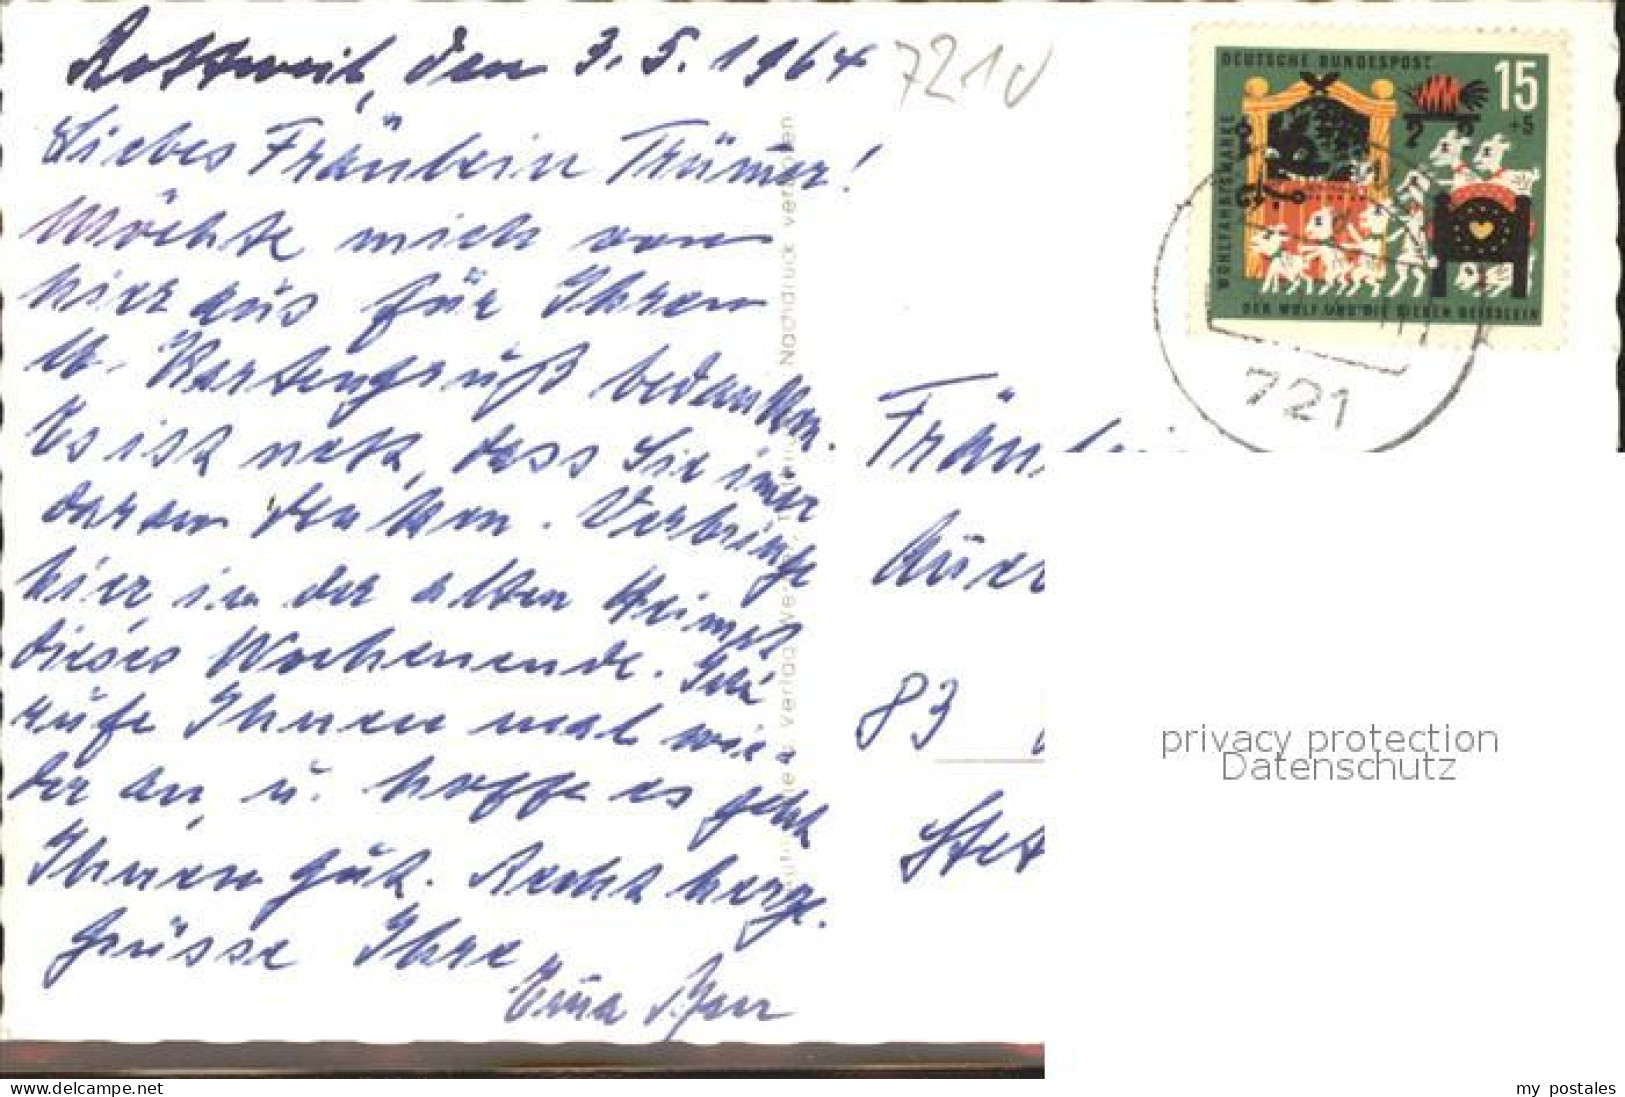 Rottweil, den 3.5.1964
7210
Liebes Fräulein Trümer!
Möchte mich von
hier aus für Ihren
lb. Kartengruß bedanken.
Es ist nett, dass Sie imer
daran denken. Verbringe
hier in der alten Heimat
dieses Wochenende. Ich
rufe Ihnen mal wie-
der an, u. hoffe es geht
Ihnen gut. Recht herzl.
Grüsse Ihre
Erna
Nachdruck verboten
Verlag
DEUTSCHE BUNDESPOST
15
+5
WOHLFAHRTSMARKE
DER WOLF UND DIE SIEBEN GEISSLEIN
721
Fräulein
83
Stet
privacy protection
Datenschutz
www.delcampe.net
my_postales